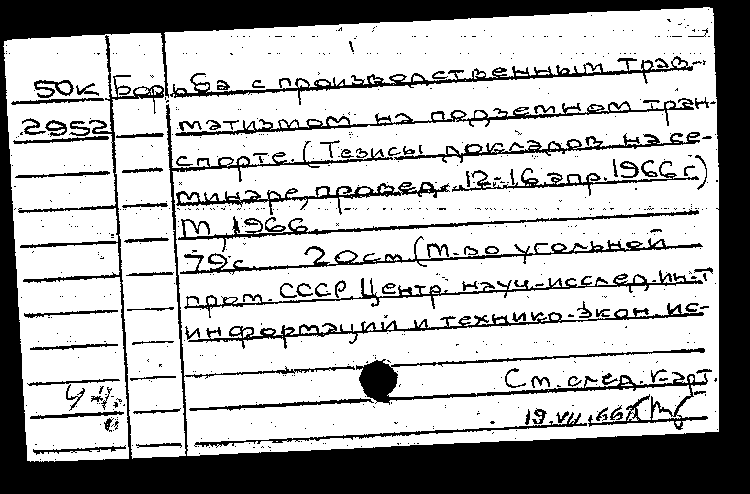 50к Борьба с производственным трав-
2952 матизмом на подземном тран-
спорте. (Тезисы докладов на се-
минаре, провед. 12-16 апр. 1966 г.)
М., 1966.
79 с. 20 см. (М-во угольной
пром. СССР. Центр. науч.-исслед. ин-т
информации и технико-экон. ис-
См. след. карт.
19.VII.66